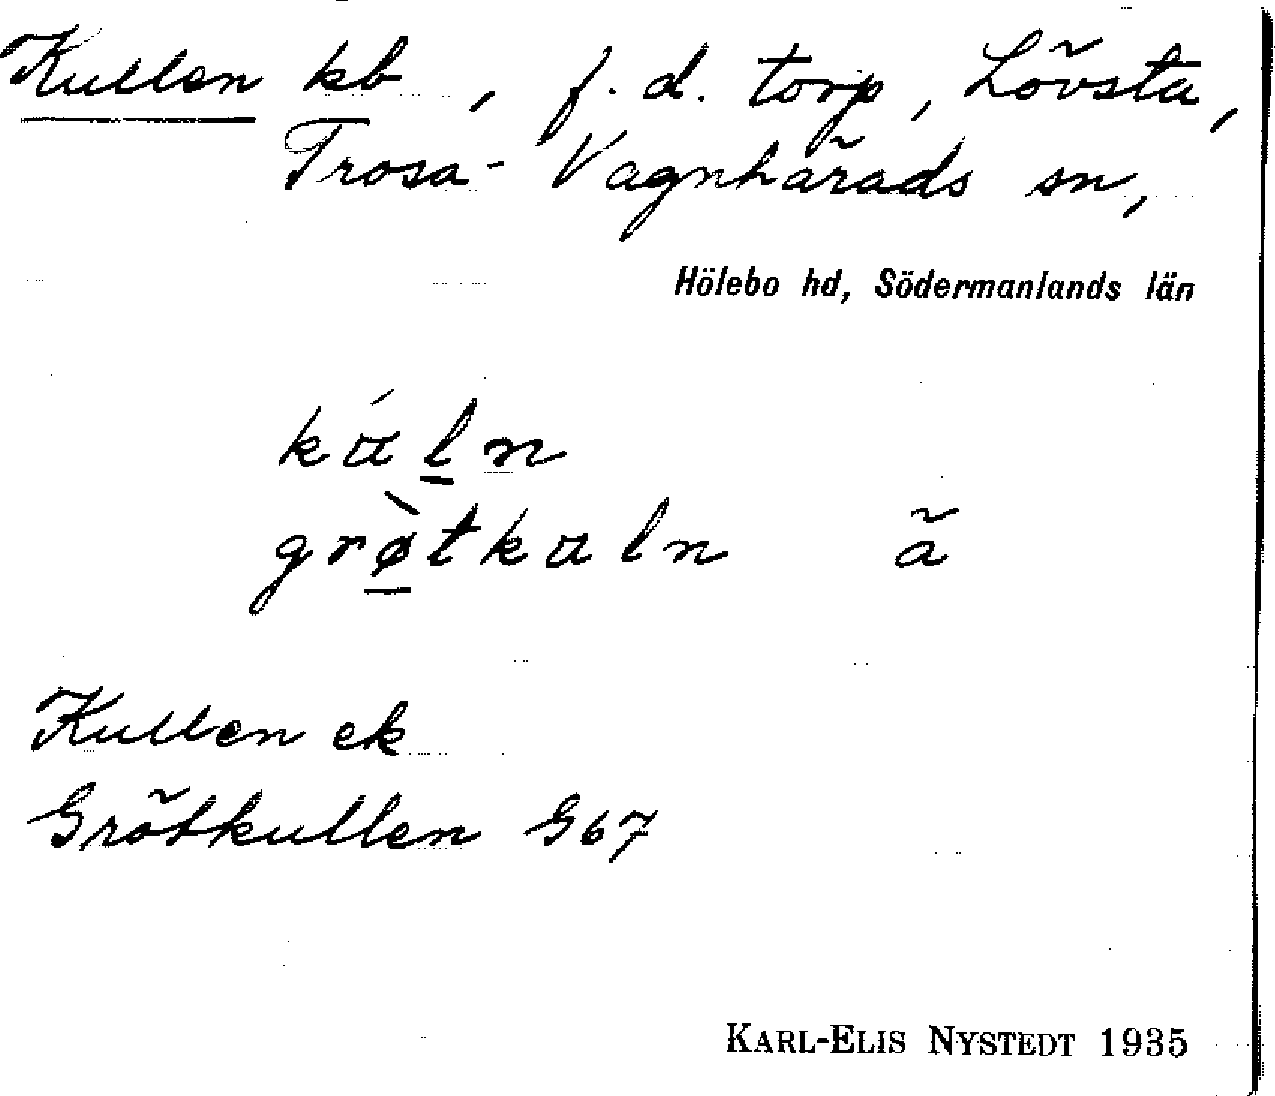 Kullen kb, f.d. torp, Lövsta,
Trosa-Vagnhärads sn,
Hölebo hd, Södermanlands län
kúl̲n
grø̲̀tkuln ã
Kullen ek
Grötkullen G67
KARL-ELIS NYSTEDT 1935